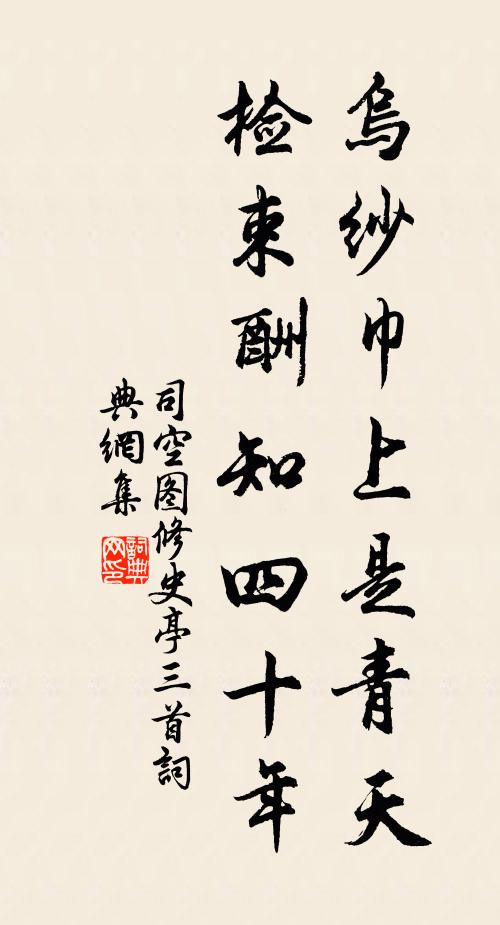 乌纱巾上是青天
检束酬知四十年
司空图修史亭三首词
典網集
詞典网印